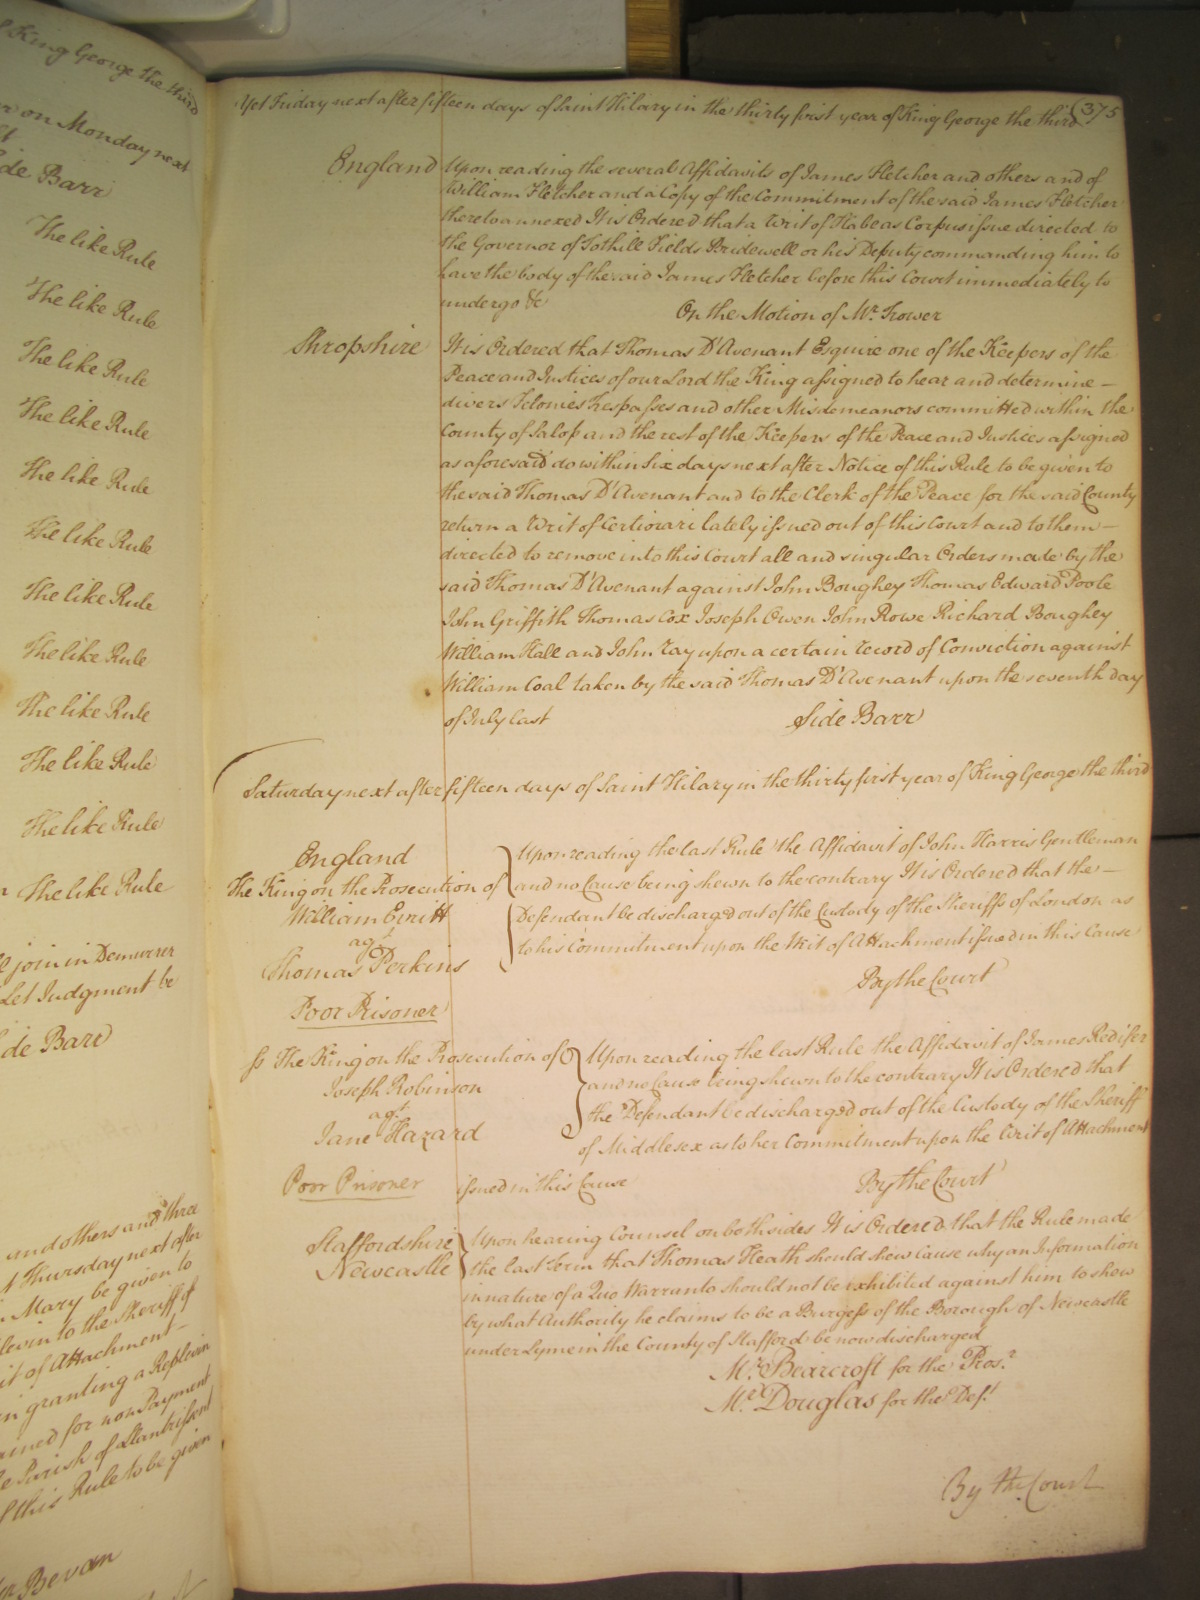 King George the third
on Monday next
Side Barr
The like Rule
The like Rule
The like Rule
The like Rule
The like Rule
The like Rule
The like Rule
The like Rule
The like Rule
The like Rule
The like Rule
The like Rule
join in Demurrer
Let Judgment be
Side Barr
and others and three
Thursday next after
Mary be given to
to the Sheriff of
of Attachment
in granting a Replevin
for non Payment
Parish of Llantrissent
this Rule to be given
Bevan
Yet Friday next after fifteen days of Saint Hilary in the thirty first year of King George the third (375
England Upon reading the several Affidavits of James Fletcher and others and of
William Fletcher and a Copy of the Commitment of the said James Fletcher
thereto annexed It is Ordered that a Writ of Habeas Corpus issue directed to
the Governor of Tothill Fields Bridewell or his Deputy commanding him to
have the body of the said James Fletcher before this Court immediately to
undergo &c On the Motion of Mr. Trower
Shropshire It is Ordered that Thomas D'Avenant Esquire one of the Keepers of the
Peace and Justices of our Lord the King assigned to hear and determine –
divers Felonies Trespasses and other Misdemeanors committed within the
County of Salop and the rest of the Keepers of the Peace and Justices assigned
as aforesaid do within Six days next after Notice of this Rule to be given to
the said Thomas D'Avenant and to the Clerk of the Peace for the said County
return a Writ of Certiorari lately issued out of this Court and to them –
directed to remove into this Court all and singular Orders made by the
said Thomas D'Avenant against John Boughey Thomas Edward Poole
John Griffith Thomas Cox Joseph Owen John Rowe Richard Boughey
William Hall and John Tay upon a certain record of Conviction against
William Coal taken by the said Thomas D'Avenant upon the seventh day
of July last Side Barr
Saturday next after fifteen days of Saint Hilary in the thirty first year of King George the third
England
The King on the Prosecution of
William Evritt
agt.
Thomas Perkins
Poor Prisoner
Upon reading the last Rule the Affidavit of John Harris Gentleman
and no Cause being shewn to the contrary It is Ordered that the –
Defendant be discharged out of the Custody of the Sheriffs of London as
to his Commitment upon the Writ of Attachment issued in this Cause
By the Court
ss The King on the Prosecution of
Joseph Robinson
agt.
Jane Hazard
Poor Prisoner
Upon reading the last Rule the Affidavit of James Redifer
and no Cause being shewn to the contrary It is Ordered that
the Defendant be discharged out of the Custody of the Sheriff
of Middlesex as to her Commitment upon the Writ of Attachment
issued in this Cause By the Court
Staffordshire
Newcastle
Upon hearing Counsel on both sides It is Ordered that the Rule made
the last Term that Thomas Heath should shew Cause why an Information
in nature of a Quo Warranto should not be exhibited against him to shew
by what Authority he claims to be a Burgess of the Borough of Newcastle
under Lyme in the County of Stafford be now discharged
Mr. Bearcroft for the Pros.r
Mr. Douglas for the Def.t
By the Court